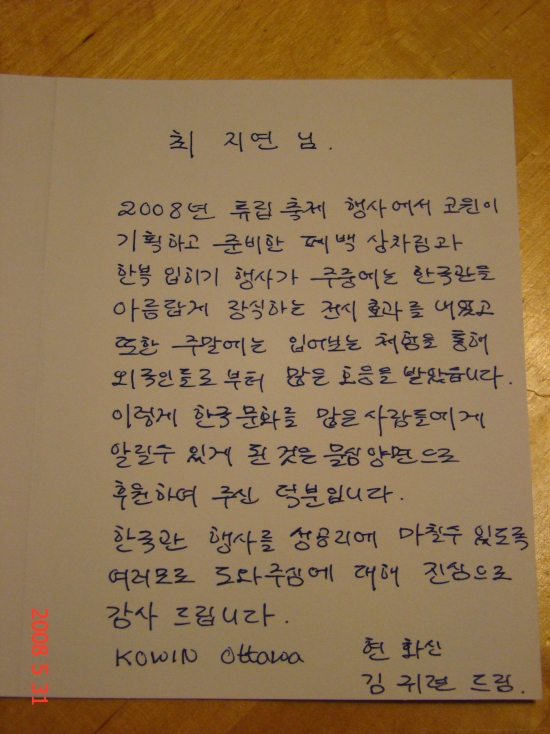 최 지연 님.
2008년 튜립 축제 행사에서 코윈이
기획하고 준비한 폐백 상차림과
한복 입히기 행사가 주중에는 한국관을
아름답게 장식하는 전시 효과를 내었고
또한 주말에는 입어보는 체험을 통해
외국인들로부터 많은 호응을 받았습니다.
이렇게 한국문화를 많은사람들에게
알릴수 있게 된 것은 물심양면으로
후원하여 주신 덕분입니다.
한국관 행사를 성공리에 마칠수 있도록
여러모로 도와주심에 대해 진심으로
감사 드립니다.
KOWIN Ottawa 현 화신
김 귀련 드림.
2008 5 31